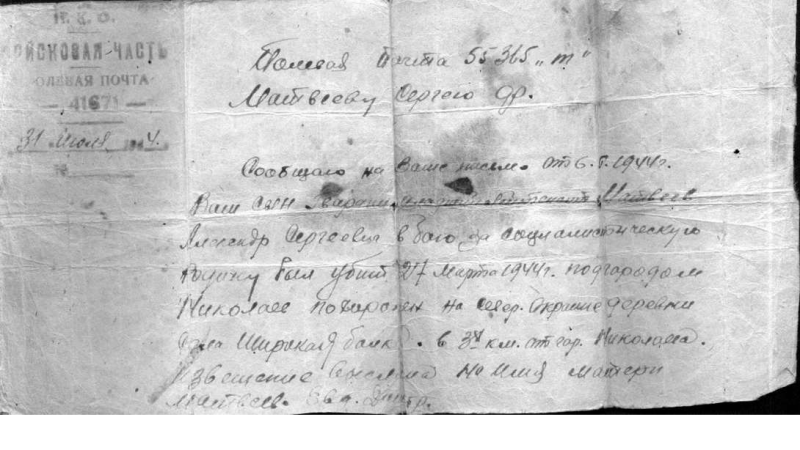 Н.К.О.
ВОЙСКОВАЯ ЧАСТЬ
ПОЛЕВАЯ ПОЧТА
— 41671 —
31 Июля 1944.
№
Полевая Почта 55365 „т"
Матвееву Сергею др.
Сообщаю на Ваше письмо от 6.7.1944г.
Ваш сын Гвардии младший лейтенант Матвеев
Александр Сергеевич в бою за социалистическую
Родину был убит 27 Марта 1944г. под городом
Николаев похоронен на север. Окраине деревни
Широкая балка. в 3х км. от гор. Николаева.
Извещение выслано на имя матери
Матвеев.